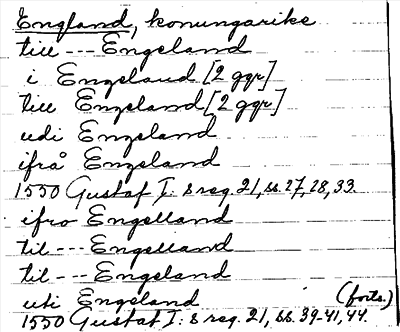 England, konungarike
till --- Engeland
i Engelaud [2 ggr]
till Engeland [2 ggr]
udi Engeland
ifrå Engeland
1550 Gustaf I: s reg. 21, ss. 27, 28, 33.
ifro Engelland
til --- Engelland
til --- Engeland
uti Engeland (forts.)
1550 Gustaf I: s reg. 21, ss. 39-41, 44.